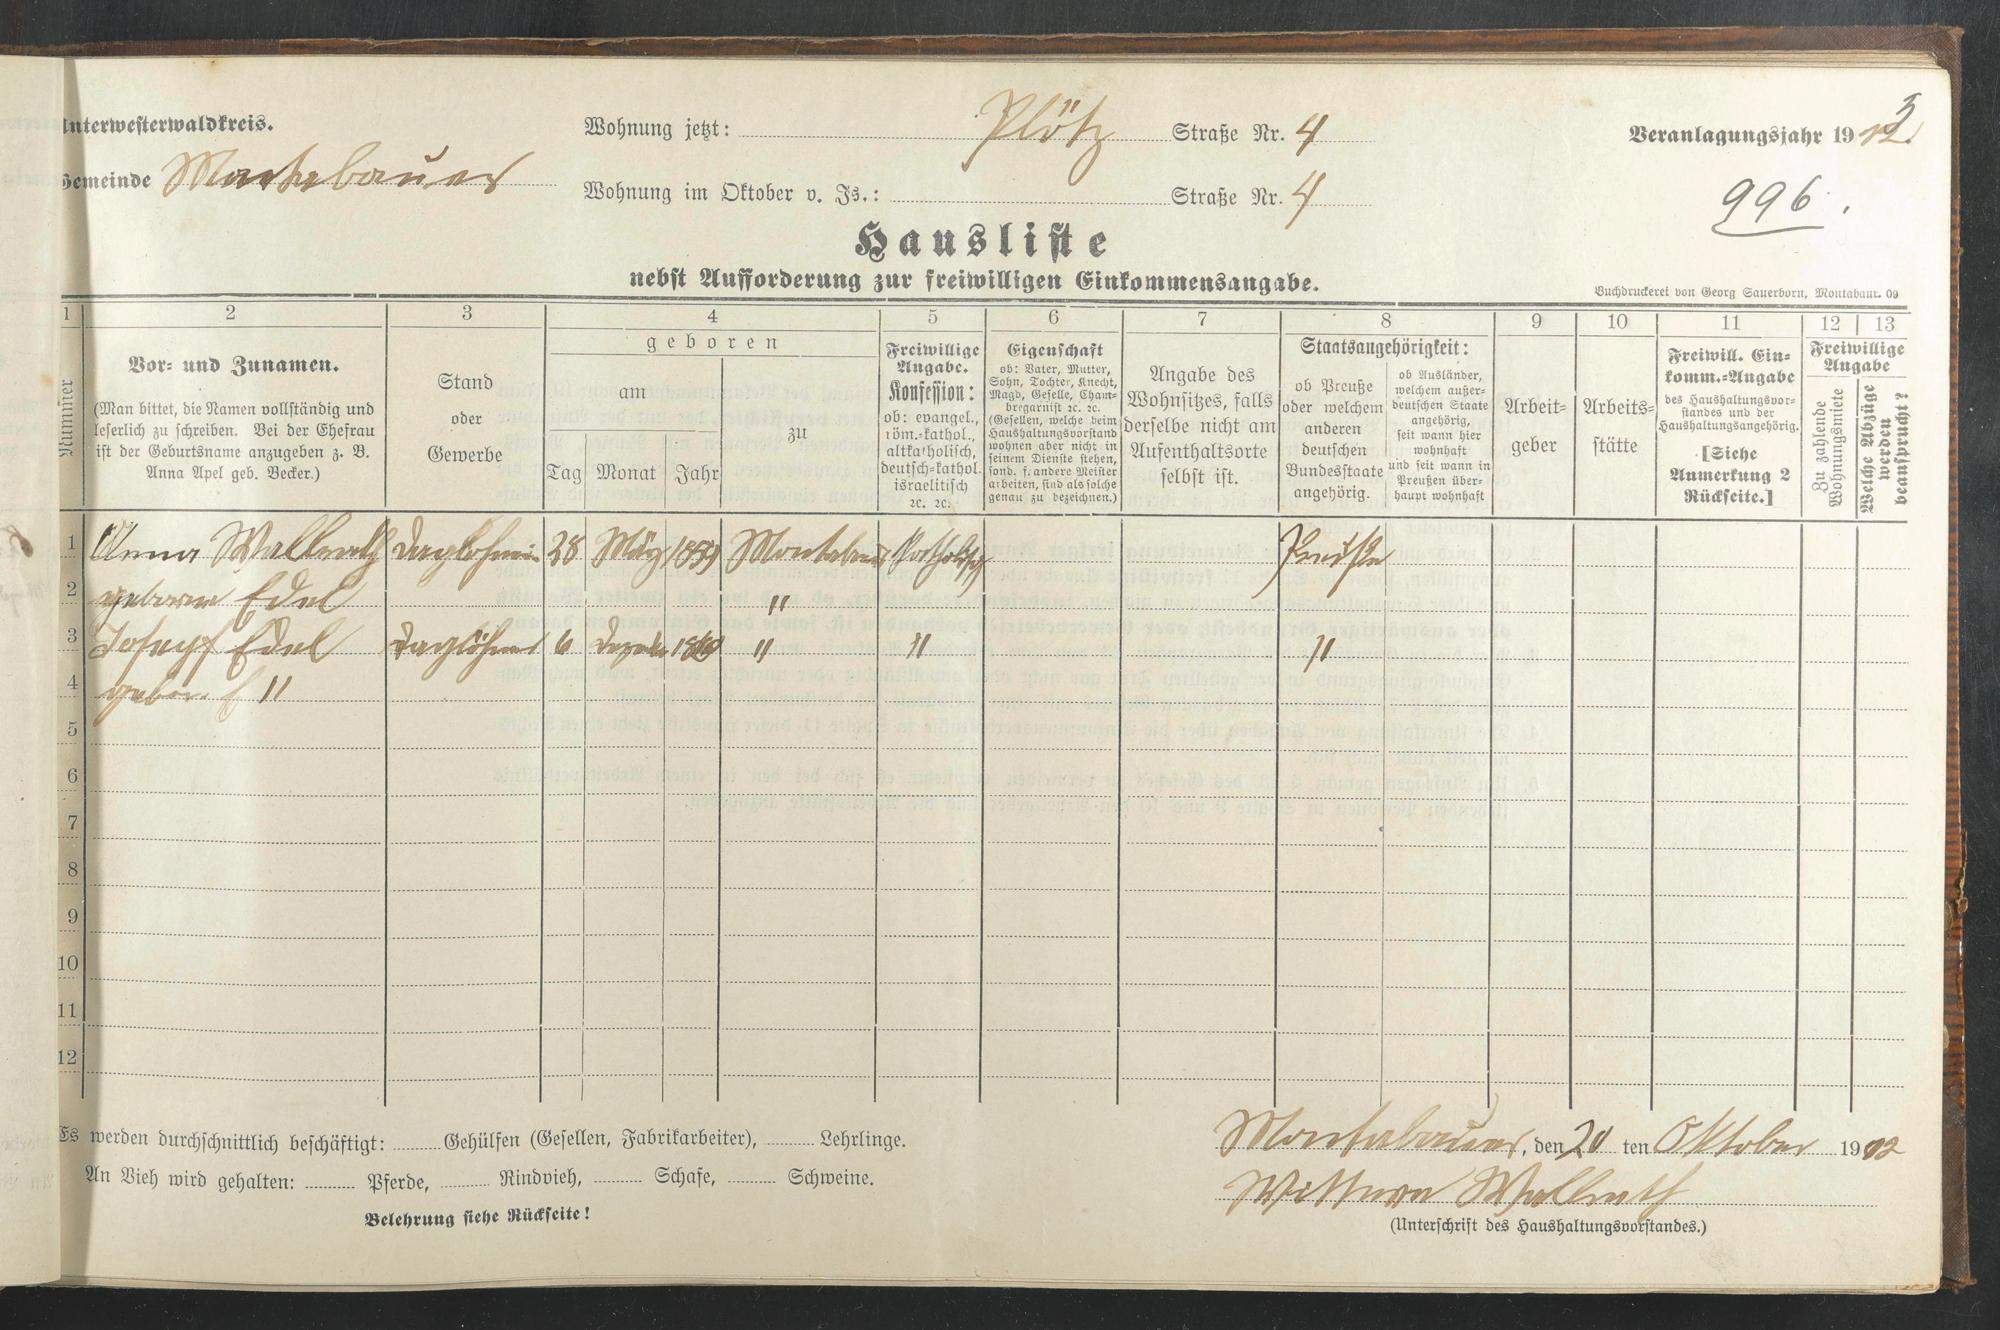 Unterwesterwaldkreis.
Gemeinde Montabaur
Wohnung jetzt: Plötz Straße Nr. 4
Wohnung im Oktober v. Js.: Straße Nr. 4
Veranlagungsjahr 1913
996.
Hausliste
nebst Aufforderung zur freiwilligen Einkommensangabe.
Buchdruckerei von Georg Sauerborn, Montabaur. 09
1 2 3 4 5 6 7 8 9 10 11 12 13
Nummer
Vor- und Zunamen.
(Man bittet, die Namen vollständig und
leserlich zu schreiben. Bei der Ehefrau
ist der Geburtsname anzugeben z. B.
Anna Apel geb. Becker.)
Stand
oder
Gewerbe
geboren
am
Tag Monat Jahr
zu
Freiwillige
Angabe.
Konfession:
ob: evangel.,
röm.-kathol.,
altkatholisch,
deutsch-kathol.
israelitisch
ɾc. ɾc.
Eigenschaft
ob: Vater, Mutter,
Sohn, Tochter, Knecht,
Magd, Geselle, Cham-
bregarnist ɾc. ɾc.
(Gesellen, welche beim
Haushaltungsvorstand
wohnen aber nicht in
seinem Dienste stehen,
sond. f. andere Meister
arbeiten, sind als solche
genau zu bezeichnen.)
Angabe des
Wohnsitzes, falls
derselbe nicht am
Aufenthaltsorte
selbst ist.
Staatsangehörigkeit:
ob Preuße
oder welchem
anderen
deutschen
Bundesstaate
angehörig.
ob Ausländer,
welchem außer-
deutschen Staate
angehörig,
seit wann hier
wohnhaft
und seit wann in
Preußen über-
haupt wohnhaft
Arbeit-
geber
Arbeits-
stätte
Freiwill. Ein-
komm.-Angabe
des Haushaltungsvor-
standes und der
Haushaltungsangehörig.
[Siehe
Anmerkung 2
Rückseite.]
Freiwillige
Angabe
Zu zahlende
Wohnungsmiete
Welche Abzüge
werden
beansprucht?
1 Anna Wallrath Taglöhnerin 28 März Montabaur Katholisch Preuße
2 geborene Edel "
3 Joseph Edel Taglöhner 6 " " "
4 "
5
6
7
8
9
10
11
12
Es werden durchschnittlich beschäftigt: Gehülfen (Gesellen, Fabrikarbeiter), Lehrlinge.
An Vieh wird gehalten: Pferde, Rindvieh, Schafe, Schweine.
Belehrung siehe Rückseite!
Montabaur, den 20 ten Oktober 1912
Wittwe Wallrath
(Unterschrift des Haushaltungsvorstandes.)